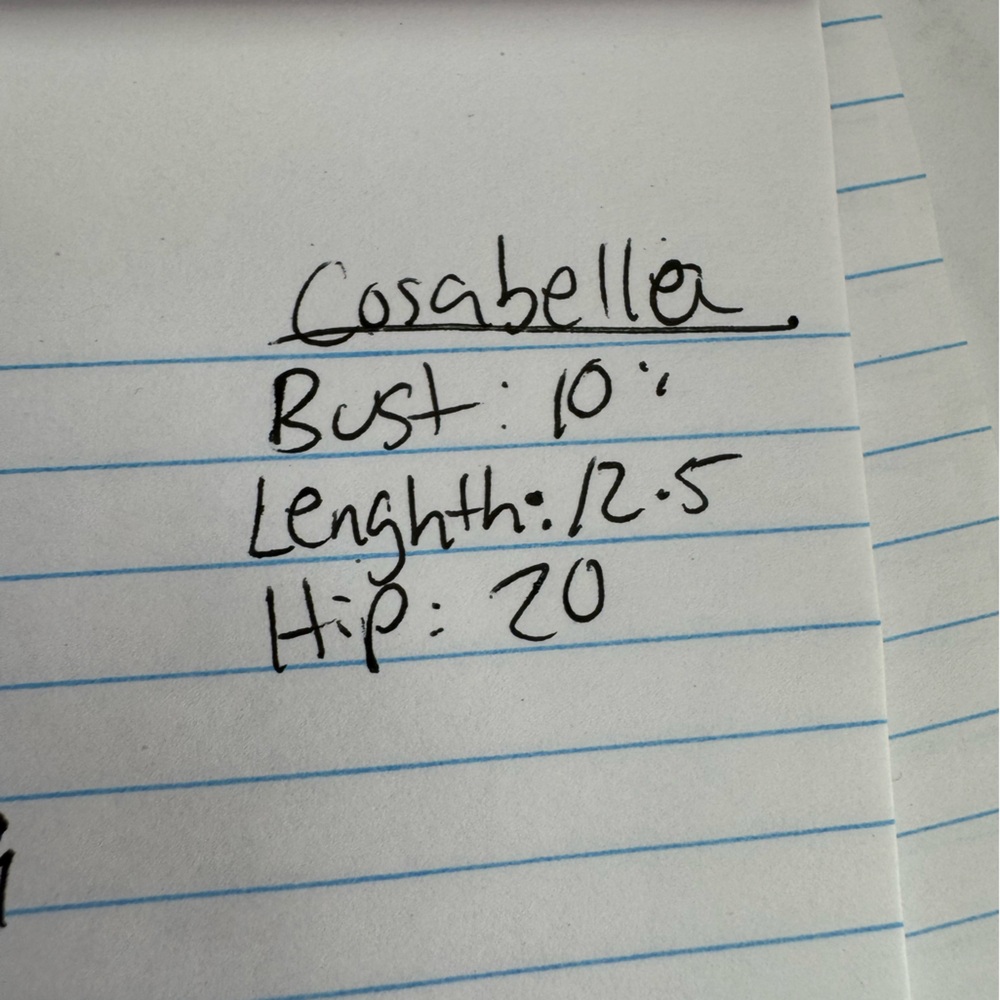 Cosabella
Bust: 10"
Lenghth: 12.5
Hip: 20